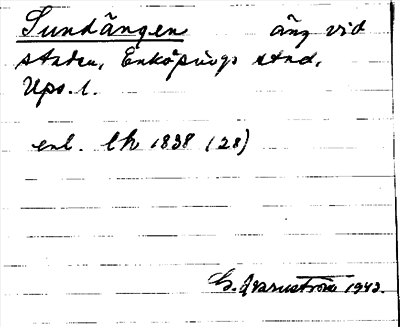 Sundängen äng vid
staden, Enköpings stad,
Ups. l.
enl. lh 1838 (28)
G. Qvarnström 1943.